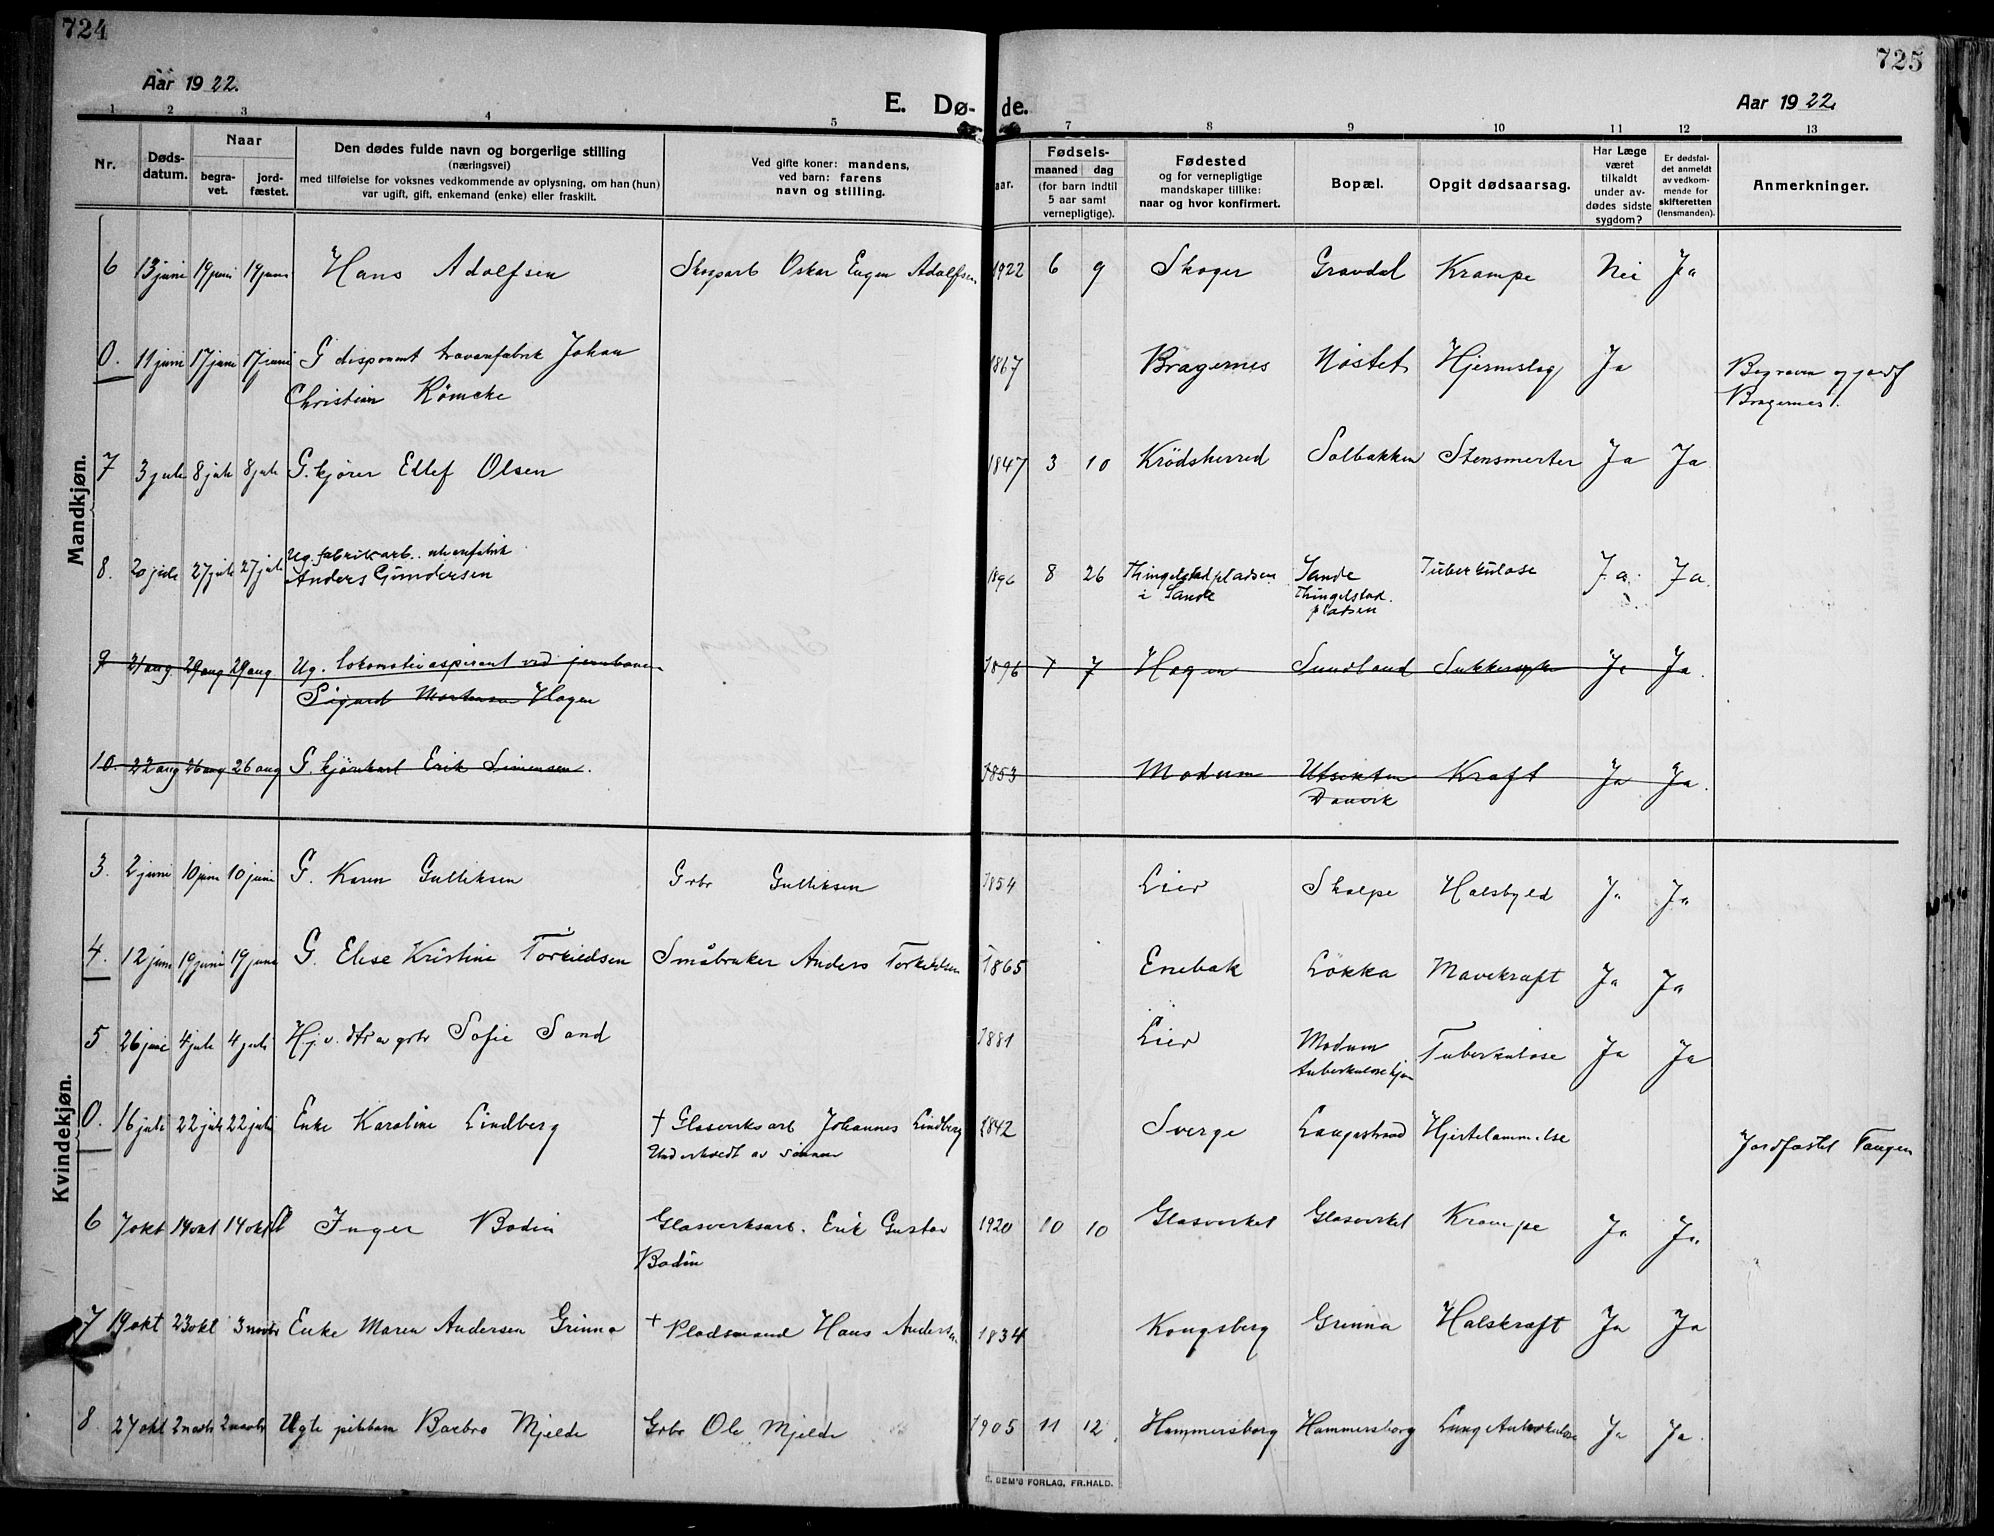 724
725
Aar 1922.
E. Døde.
Aar 1922.
1 2 3 4 5 7 8 9 10 11 12 13
Nr.
Dødsdatum.
Naar
begravet.
jordfæstet.
Den dødes fulde navn og borgerlige stilling
(næringsvei)
med tilføielse for voksnes vedkommende av oplysning, om han (hun)
var ugift, gift, enkemand (enke) eller fraskilt.
Ved gifte koner: mandens,
ved barn: farens
navn og stilling.
aar.
Fødsels-
maaned dag
(for barn indtil
5 aar samt
vernepligtige).
Fødested
og for vernepligtige
mandskaper tillike:
naar og hvor konfirmert.
Bopæl.
Opgit dødsaarsag.
Har Læge
været
tilkaldt
under av-
dødes sidste
sygdom?
Er dødsfal-
det anmeldt
av vedkom-
mende for
skifteretten
(lensmanden).
Anmerkninger.
Mandkjøn.
6 13 juni 19 juni 19 juni Hans Adolfsen Skogarb Oskar Eugen Adolfsen 1922 6 9 Skoger Gravdal Krampe Nei Ja
0. 11 juni 17 juni 17 juni G disponent Johan 1867 Bragernes Nøstet Hjerneslag Ja Begraven og jordf
Christian Kömcke Bragernes.
7 3 juli 8 juli 8 juli G. kjører Ellef Olsen 1847 3 10 Krödsherred Solbakken Stensmerter Ja Ja
8. 20 juli 27 juli 27 juli Ug. fabrikarb. Anders Gundersen 1896 8 26 Thingelstadpladsen i Sande Sande Thingelstad pladsen Tuberkulose Ja. Ja.
9 21 aug 29 aug 29 aug Ug. lokomotivaspirant ved jernbanen 1896 7 7 Hagen Sundland Sukkersyke Ja Ja.
Sigurd Mortensen Hagen
10. 22 aug 26 aug 26 aug G. kjørekarl Erik Simensen. 1853 Modum Utsikten Danvik Kræft Ja Ja.
Kvindekjøn.
3. 2 juni 10 juni 10 juni G. Karen Gulliksen Grbr Gulliksen 1854 Lier Skalpe Halsbyld Ja Ja
4. 12 juni 19 juni 19 juni G. Elise Kristine Torkildsen Småbruker Anders Torkildsen 1865 Enebak Løkka Mavekræft Ja Ja
5 26 juni 4 juli 4 juli Hj.v. dtr av grbr Sofie Sand 1881 Lier Modum tuberkulosehjem Tuberkulose Ja Ja
0. 16 juli 22 juli 22 juli Enke Karoline Lindberg † Glasverksarb Johannes Lindberg 1842 Sverge Langestrand Hjertelammelse Jordfæstet Tangen
Underholdt av sønnen
6 7 okt 14 okt 14 okt Inger Bodin Glasverksarb. Erik Gustav 1920 10 10 Glasverket Glasverket Krampe Ja Ja.
Bodin
7 19 okt 23 okt 3 novbr Enke Maren Andersen Grinna † Pladsmand Hans Andersen 1834 Kongsberg Grinna Halskræft Ja Ja
8. 27 okt 2 novbr 2 novbr Ugte Barbro Mjelde Grbr Ole Mjelde 1905 11 12 Hammersborg Hammersborg Lungetuberkulose Ja Ja.
SEM'S FORLAG, FR.HALD.